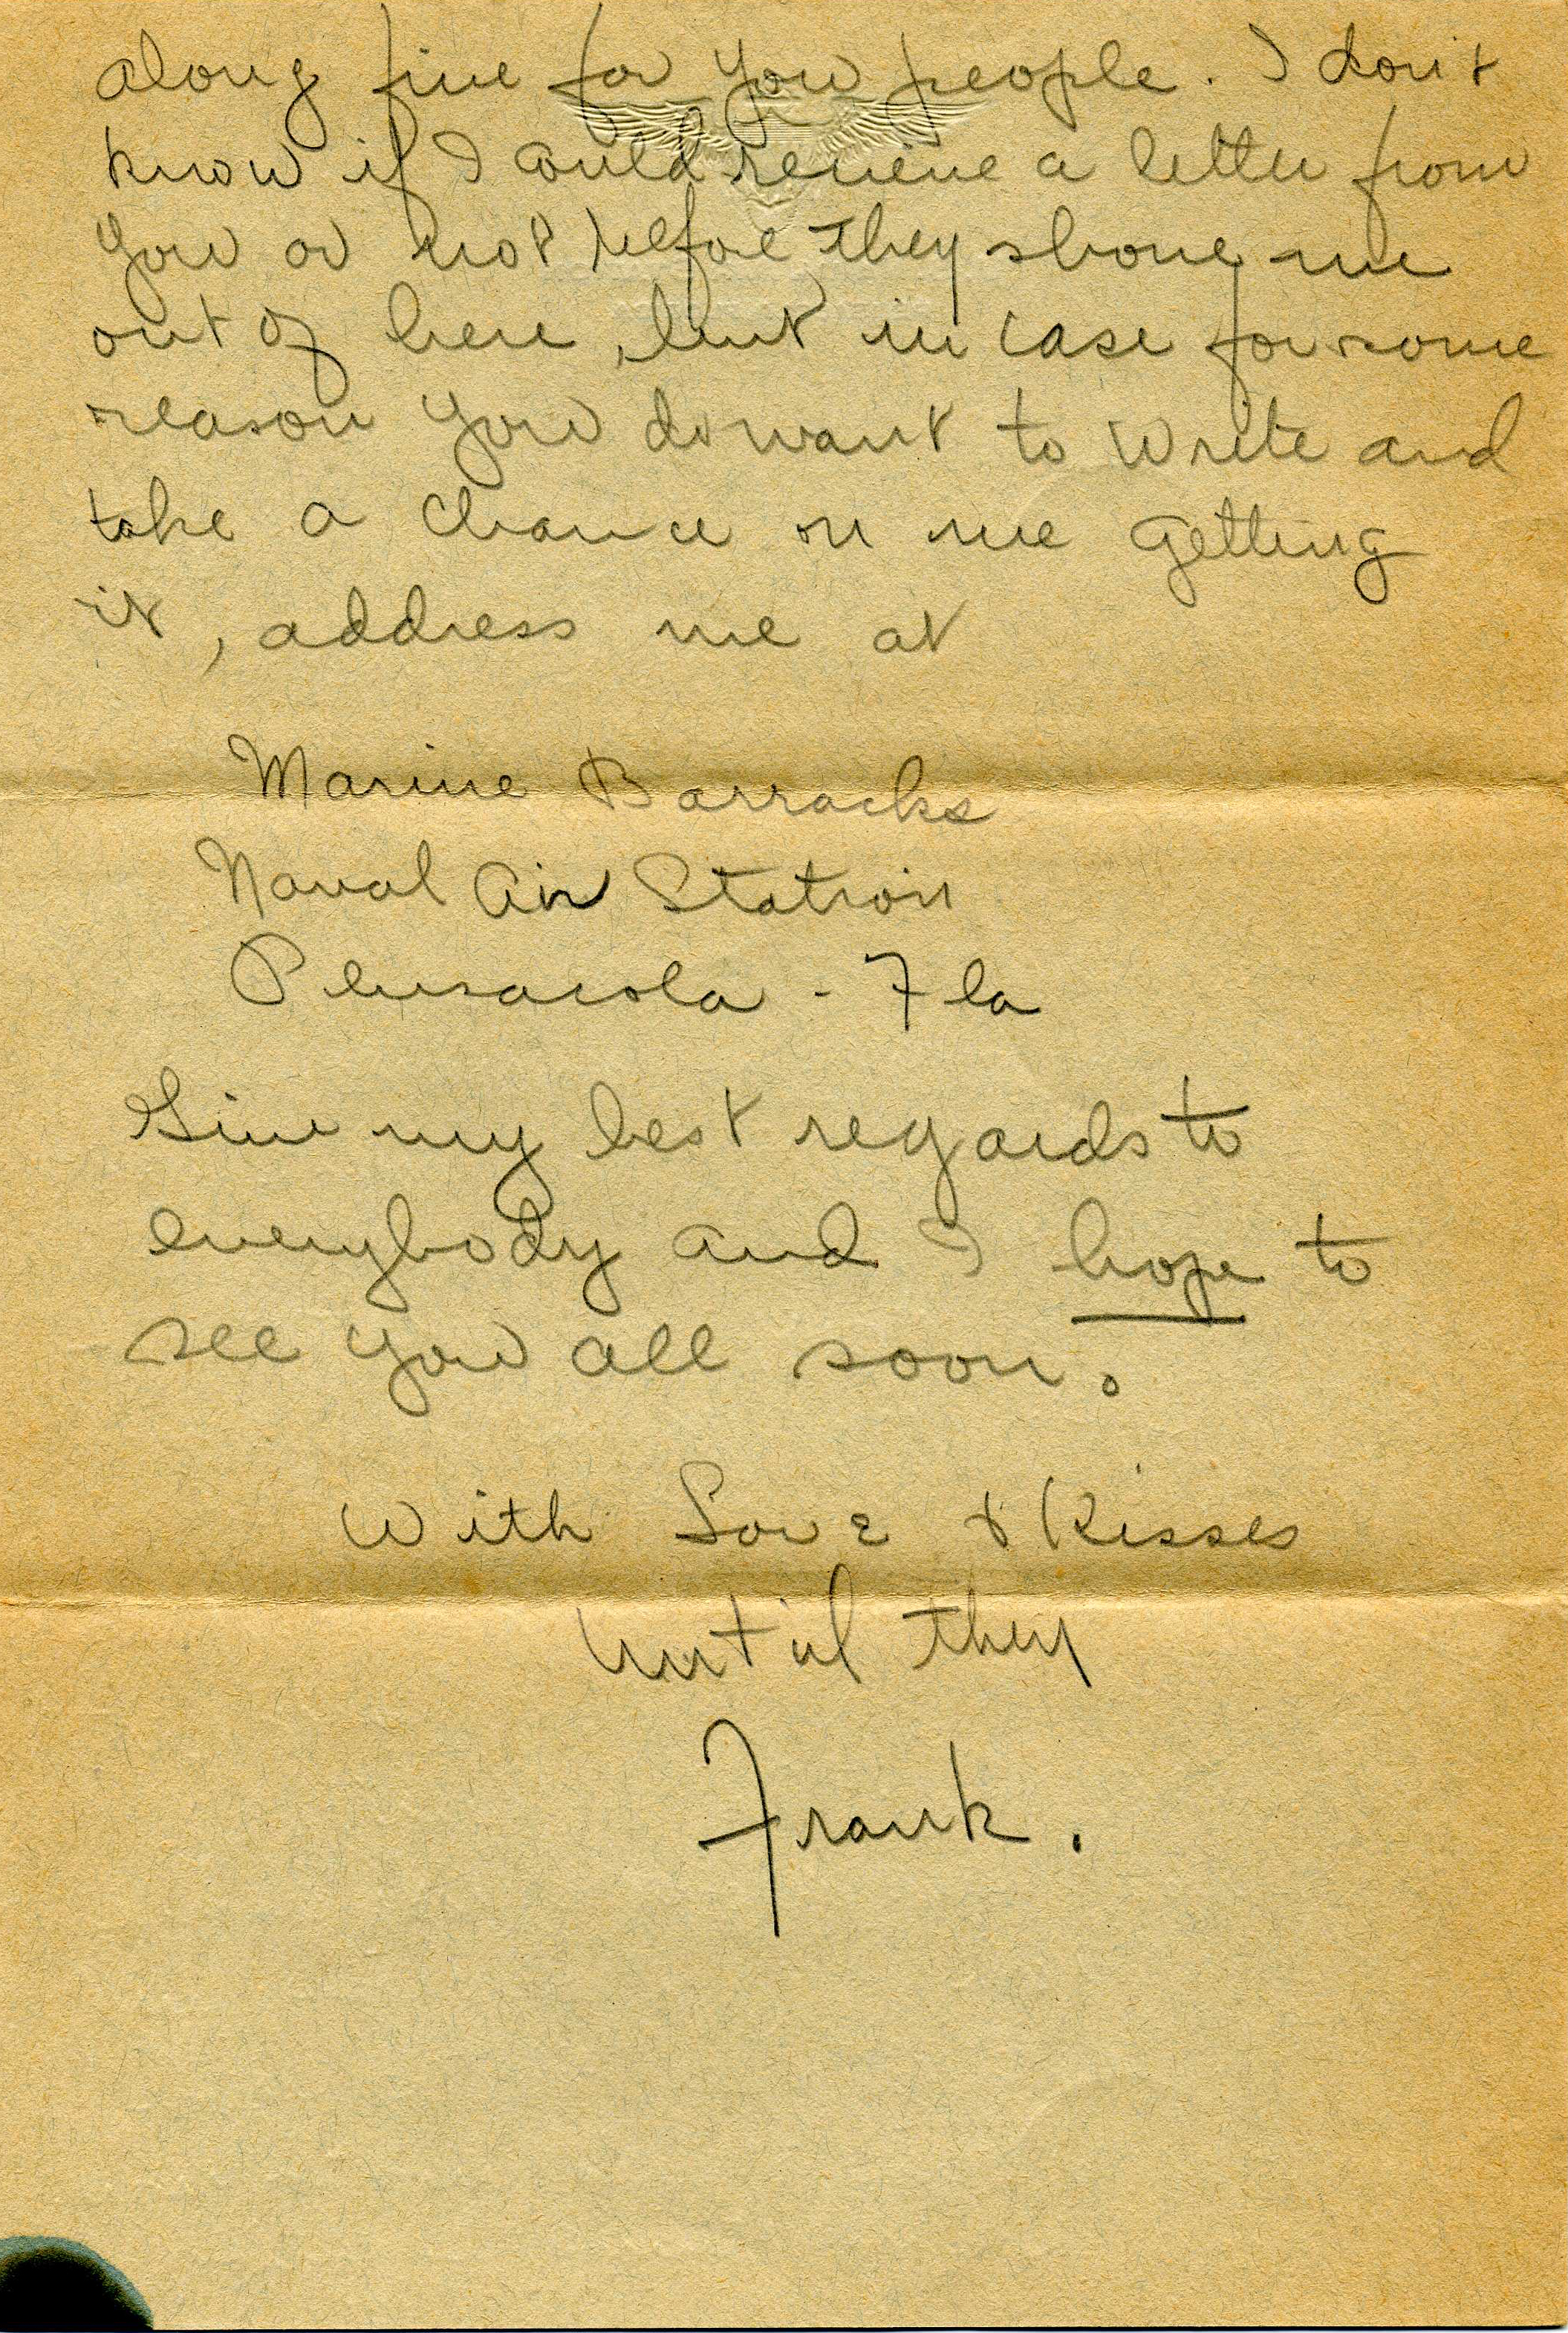 along fine for you people. I don't
know if I could receive a letter from
you or not before they shove me
out of here, but in case for some
reason you do want to write and
take a chance on me getting
it, address me at
Marine Barracks
Naval Air Station
Pensacola - Fla
Give my best regards to
everybody and I hope to
see you all soon.
With Love & Kisses
Until then
Frank.